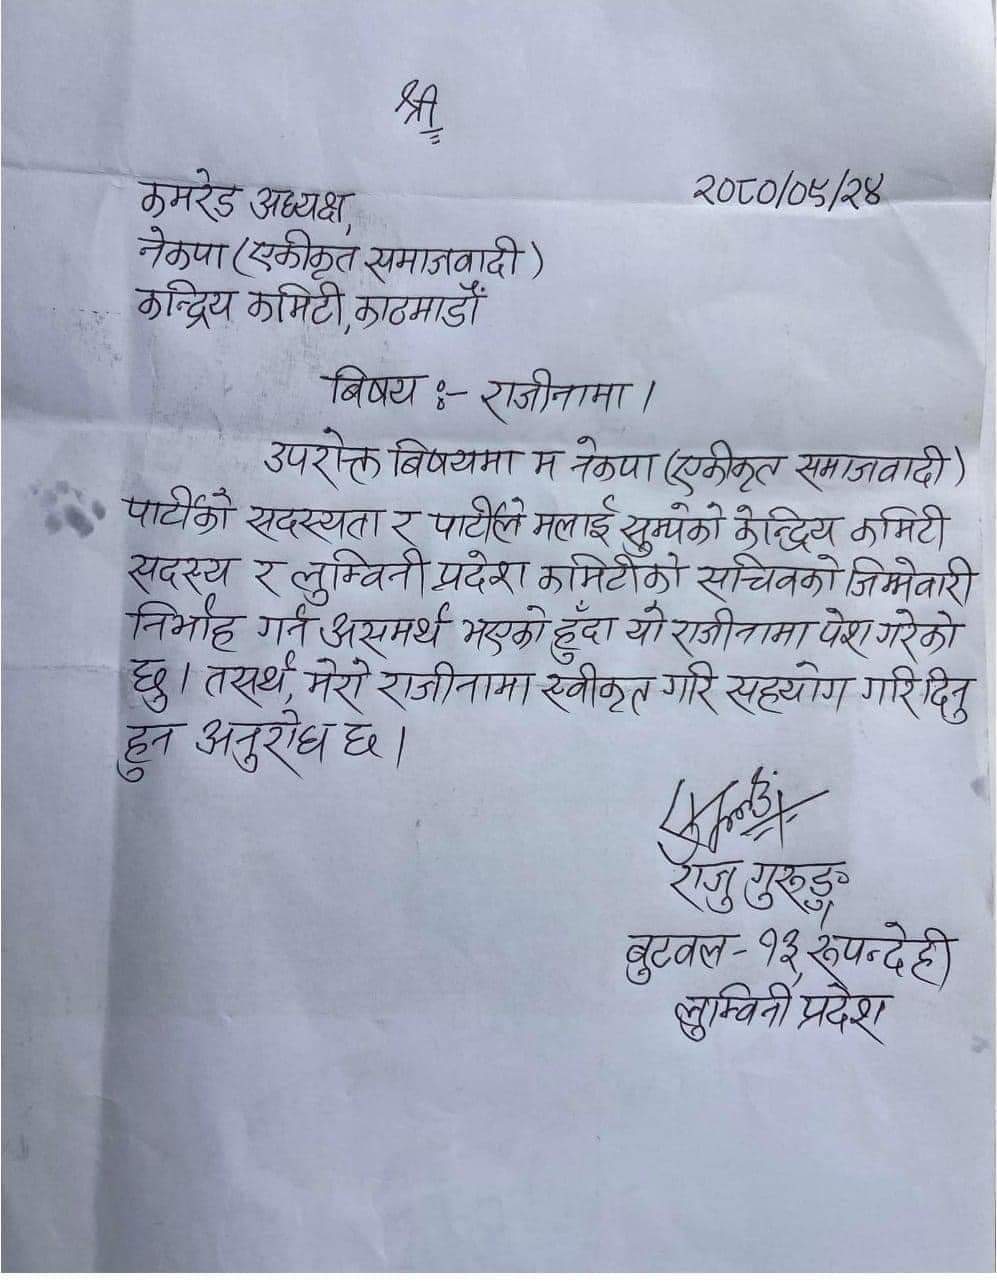 श्री
२०८०/०५/२४
कमरेड अध्यक्ष,
नेकपा (एकीकृत समाजवादी)
केन्द्रिय कमिटी, काठमाडौं
बिषय :- राजीनामा ।
उपरोक्त बिषयमा म नेकपा (एकीकृत समाजवादी)
पार्टीको सदस्यता र पार्टीले मलाई सुम्पेको केन्द्रिय कमिटी
सदस्य र लुम्विनी प्रदेश कमिटीको सचिवको जिम्मेवारी
निर्भाह गर्न असमर्थ भएको हुँदा यो राजीनामा पेश गरेको
छु । तसर्थ, मेरो राजीनामा स्वीकृत गरि सहयोग गरिदिनु
हुन अनुरोध छ ।
राजु गुरूङ
बुटवल - १३, रूपन्देही
लुम्विनी प्रदेश